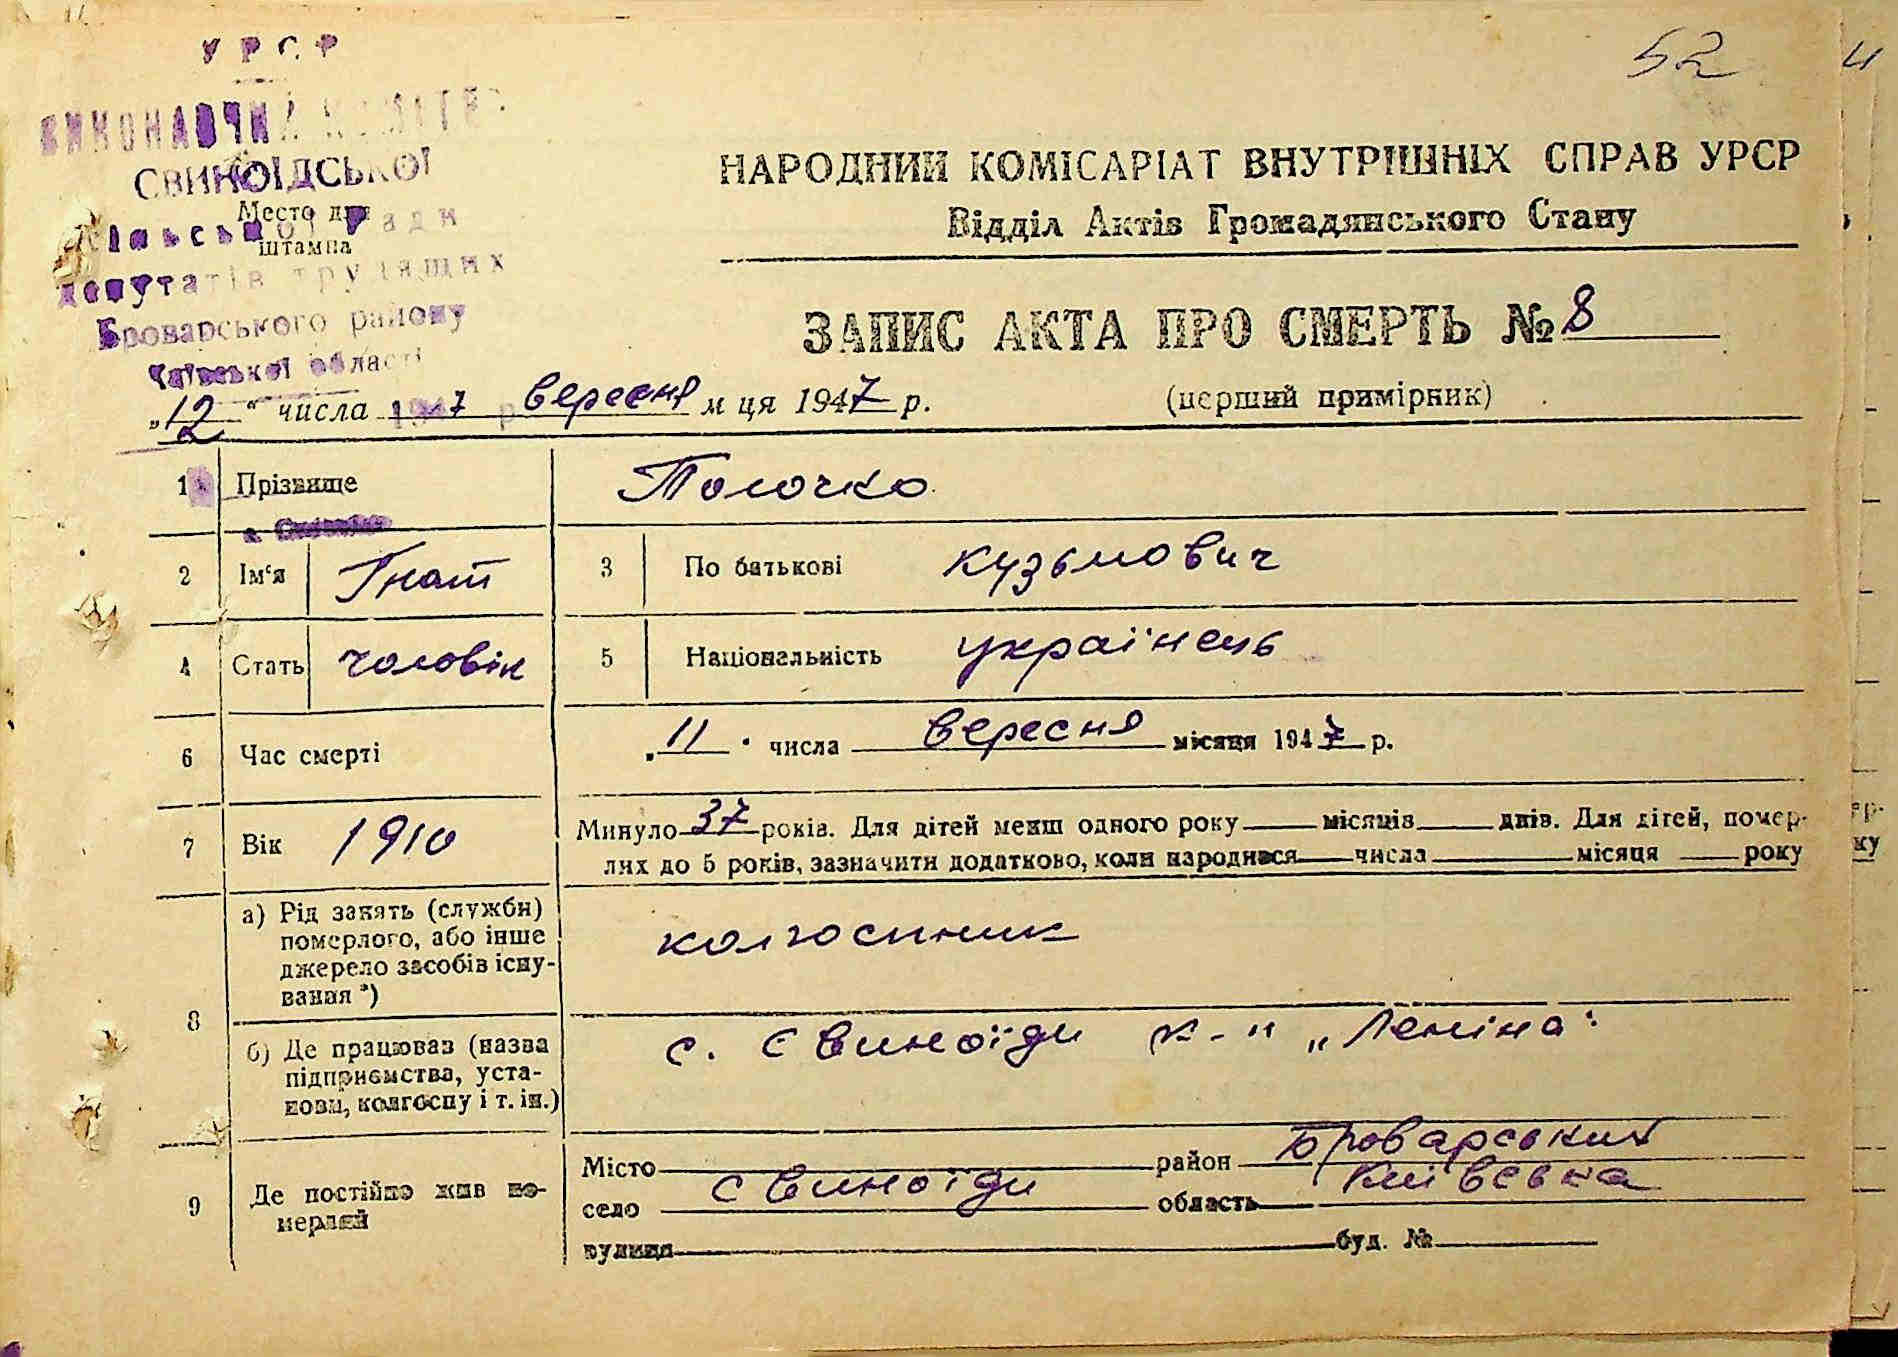 У Р С Р
52
ВИКОНАВЧИЙ КОМІТЕТ
СВИНОЇДСЬКОЇ
Место для
сільської Ради
штампа
депутатів трудящих
Броварського району
Київської області
НАРОДНИЙ КОМІСАРІАТ ВНУТРІШНІХ СПРАВ УРСР
Відділ Актів Громадянського Стану
ЗАПИС АКТА ПРО СМЕРТЬ № 8
(перший примірник)
„12“ числа вересня м ця 1947 р.
1 Прізвище Толочко
2 Ім‘я Гнат 3 По батькові Кузьмович
4 Стать чоловік 5 Національність українець
6 Час смерті „11“ числа вересня місяця 1947 р.
7 Вік 1910 Минуло 37 років. Для дітей менш одного року місяців днів. Для дітей, помер-
лих до 5 років, зазначити додатково, коли народився числа місяця року
8 а) Рід занять (служби)
померлого, або інше
джерело засобів існу-
вання *)
колгоспник
б) Де працював (назва
підприємства, уста-
нови, колгоспу і т. ін.)
с. Свиноїди к-п „Леніна“
9 Де постійно жив по-
мерлий
Місто район Броварський
село Свиноїди область Київська
вулиця буд. №